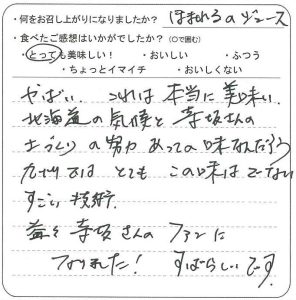 ・何をお召し上がりになりましたか？ ほまれるのジュース
・食べたご感想はいかがでしたか？（○で囲む）
・とっても美味しい！ ・おいしい ・ふつう
・ちょっとイマイチ ・おいしくない
やばい これは本当に美味い.
北海道の気候と寺坂さんの
土づくりの努力あっての味なんだろう
九州では とても この味はでない
すごい技術.
益々寺坂さんの ファンに
なりました！ すばらしいです